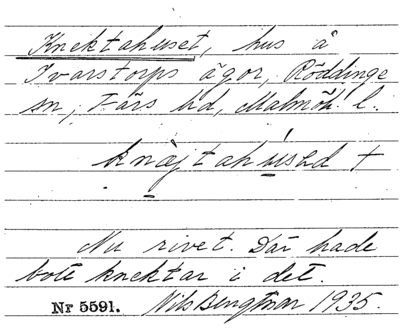 Knektahuset, hus å
Ivarstorps ägor, Röddinge
sn, Färs hd, Malmöh. l.
knäjtahúsəd +
Nu rivet. Där hade
bott knektar i det.
Nr 5591. Nils Bengtsson 1935.